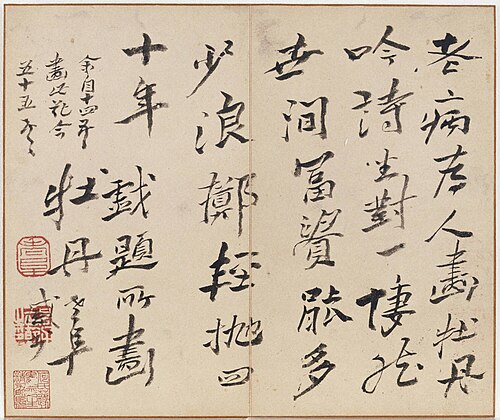 老病為人畫牡丹
吟詩坐對一悽然
世間冨貲能多
少浪擲輕抛四
十年
戲題所畫
牡丹
老阜
余自十四年
畫此花今
五十五